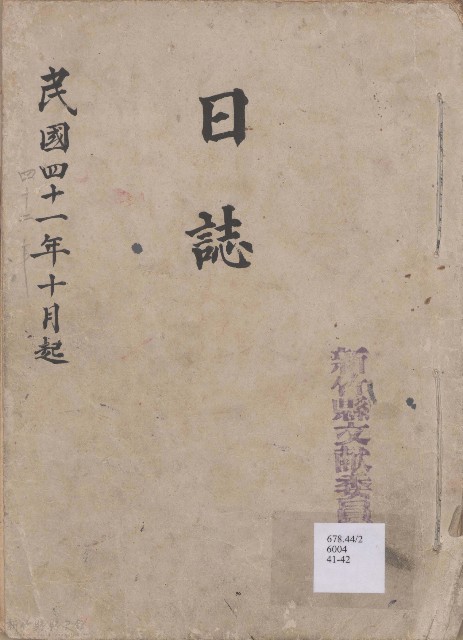 新竹縣文献委員
日誌
民國四十一年十月起
四十二
678.44/2
6004
41-42